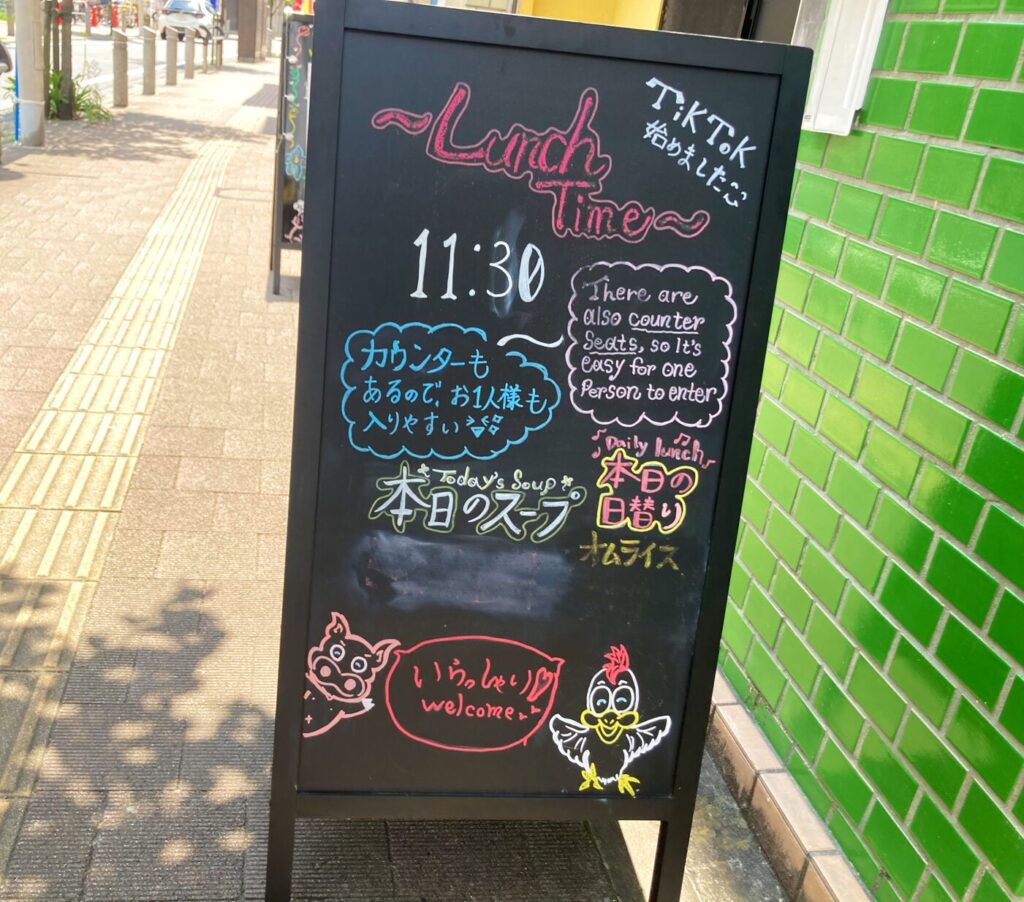 ~Lunch
Time~
TiKToK
始めました
11:30
~
There are
also counter
Seats, so it's
easy for one
Person to enter
カウンターも
あるので、お1人様も
入りやすい
Today's Soup
本日のスープ
Daily lunch
本日の
日替り
オムライス
いらっしゃい
welcome